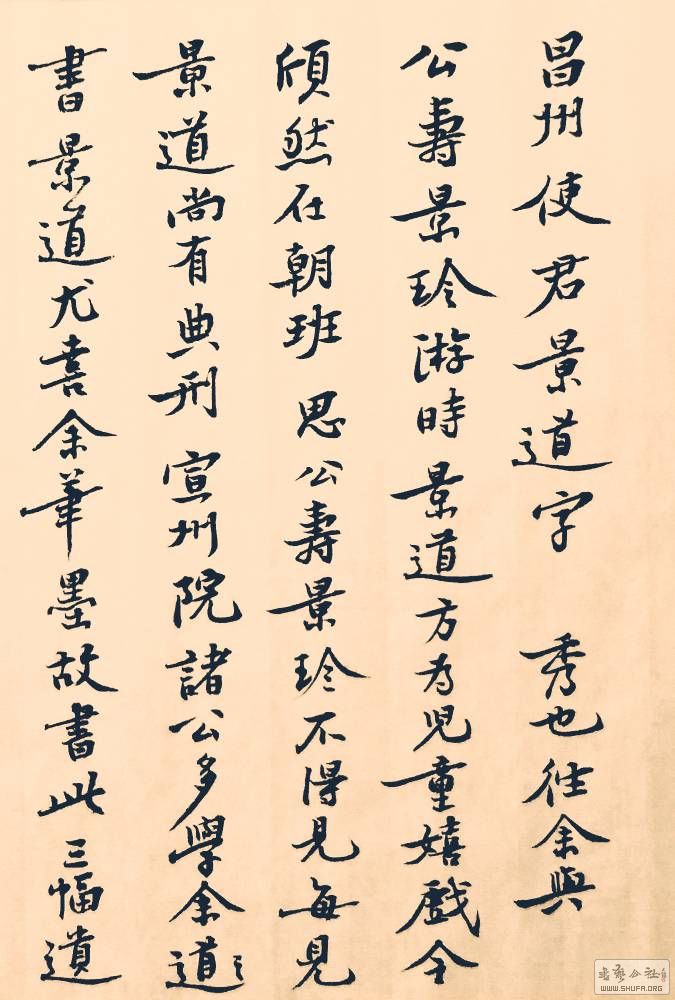 昌州使君景道字 秀也往余與
公壽景珍游時景道方為兒童嬉戲今
頎然在朝班思公壽景珍不得見每見
景道尚有典刑宣州院諸公多學余道
書景道尤喜余筆墨故書此三幅遺
WWW.SHUFA.ORG